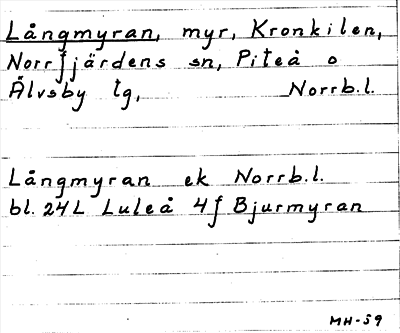 Långmyran, myr, Kronkilen,
Norrfjärdens sn, Piteå o
Älvsby tg, Norrb.l.
Långmyran ek Norrb.l.
bl. 24L Luleå 4f Bjurmyran
MH-59